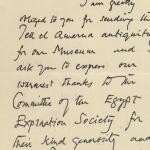 I am greatly
obliged to you for sending the
Tel el Amarna antiquities
for our Museum and
ask you to express our
warmest thanks to the
Committee of the Egypt
Exploration Society for
their kind generosity and